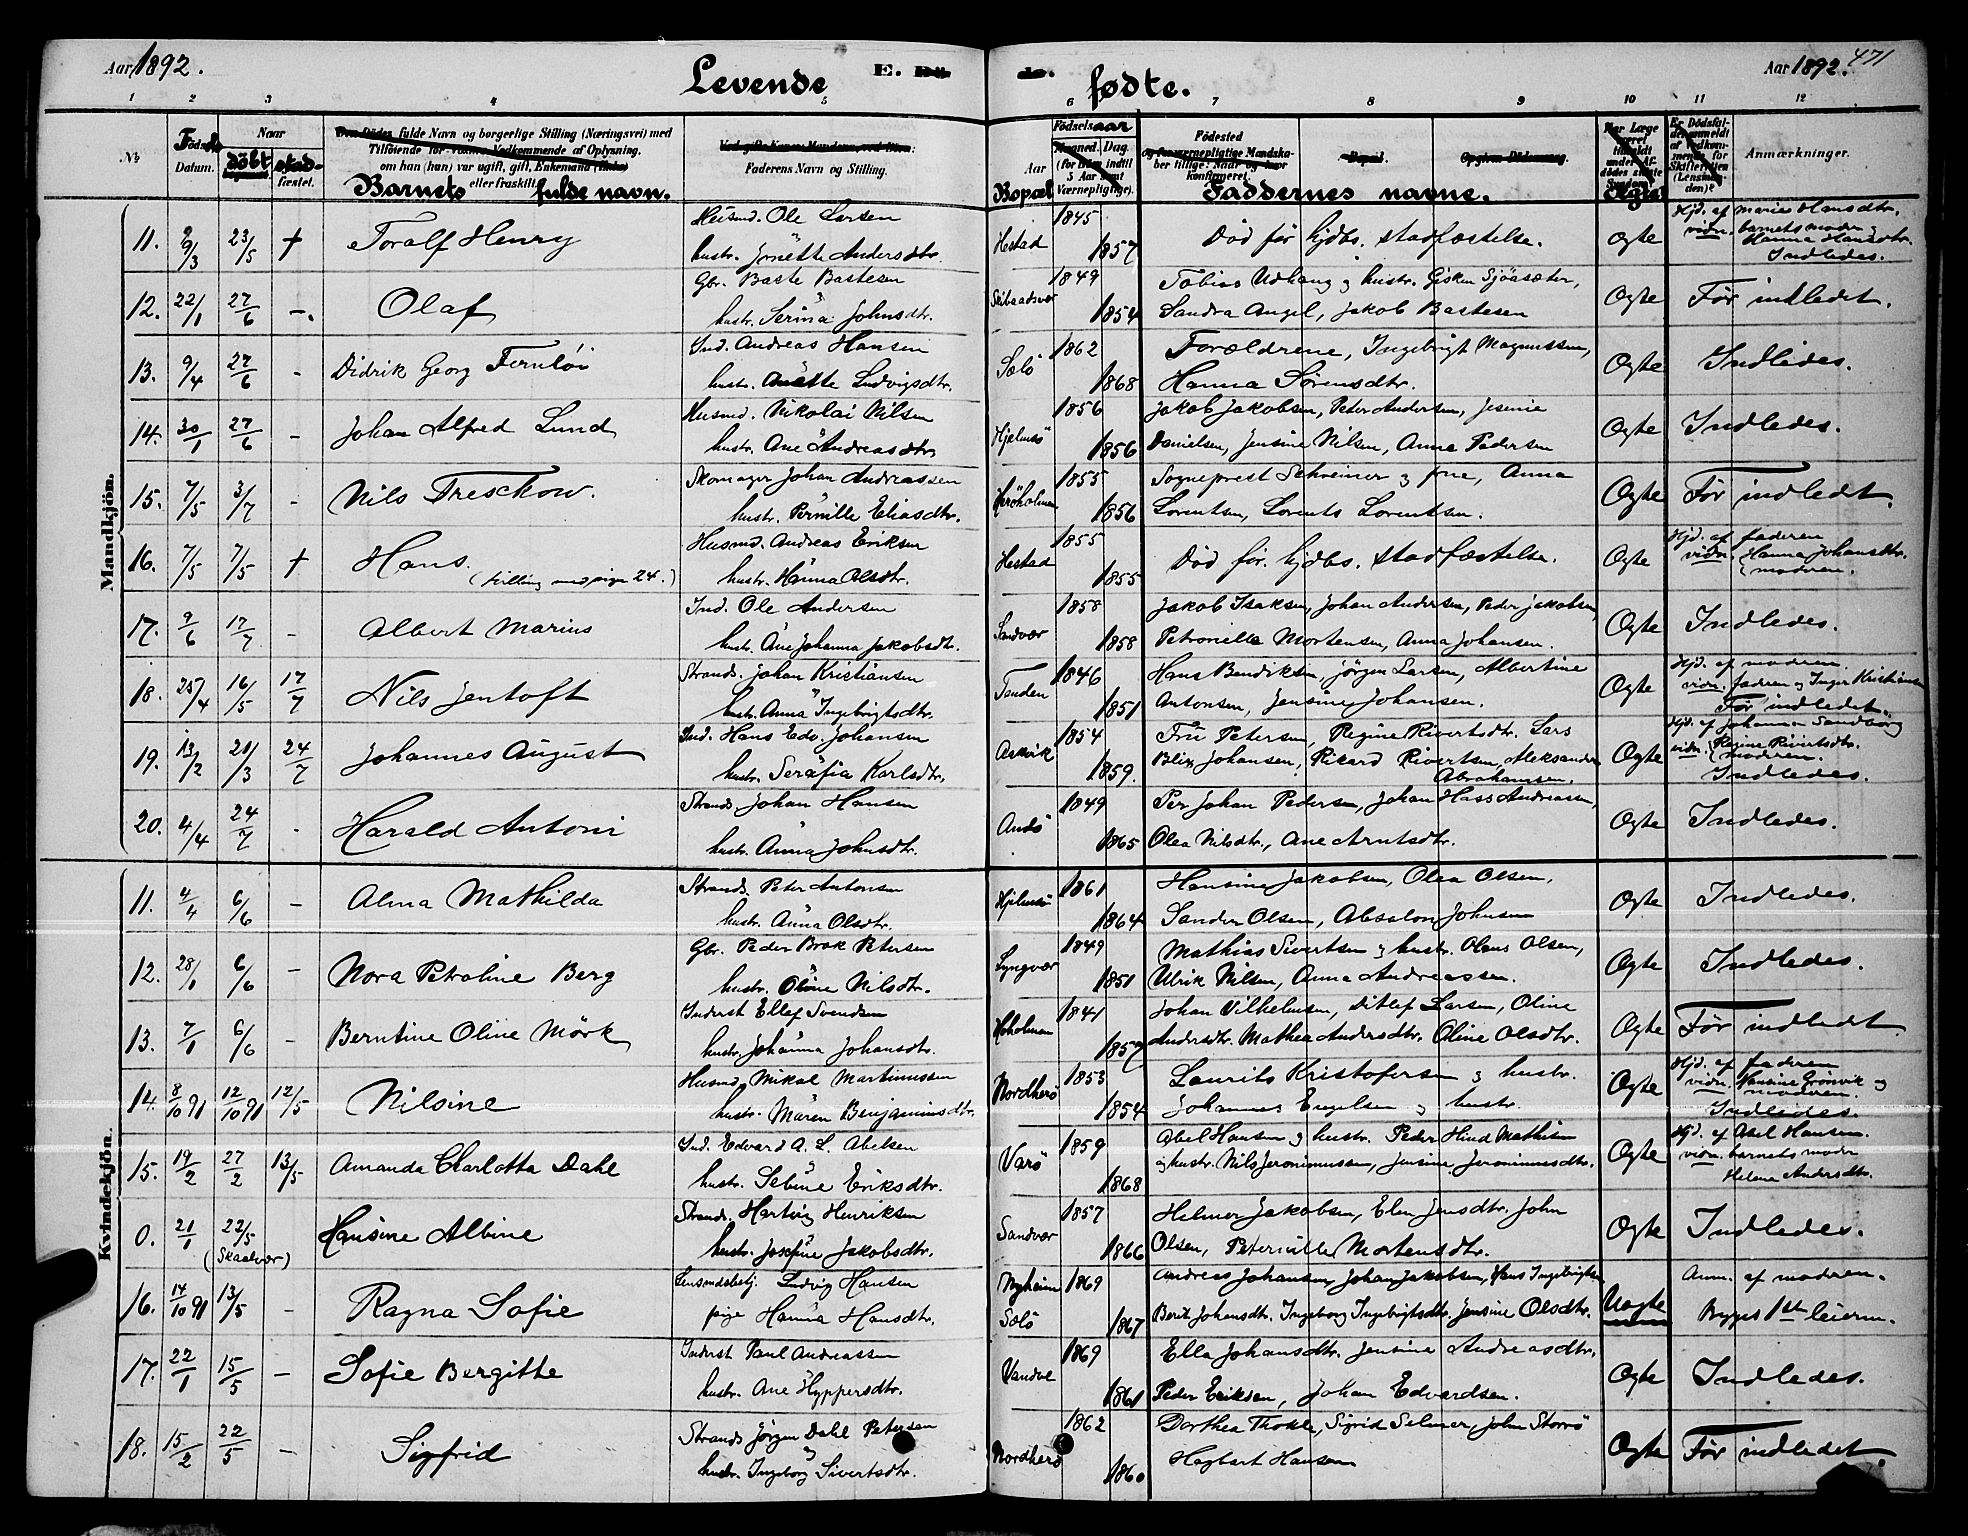 Aar 1892.
Levende
E.
fødte.
471
Aar 1892.
1 2 3 4 5 6 7 8 9 10 11 12
No
Datum.
Naar
døbt
fæstet.
Den Dødes fulde Navn og borgerlige Stilling (Næringsvei) med
Tilføiende for voxne Vedkommende af Oplysning,
om han (hun) var ugift, gift, Enkemand (Enke)
eller fraskilt.
Barnets fulde navn.
Faderens Navn og Stilling.
Bopæl
Fødselsaar
Fødested
Bopæl.
konfirmeret.
Faddernes navne.
Anmærkninger.
Mandkjön.
11. 9/3 23/5 + Toralf Henry Husmd. Ole Larsen hustr. Jonette Andersdtr. Hestad 1845 1857 Död för hjdbs. stadfæstelse. Ogte Hjd. af Marie Hansdtr. vidn. barnets moder og Hanna Hansdtr. Indledes.
12. 22/1 27/6 -. Olaf Gbr. Baste Bastesen hustr. Serina Johnsdtr. Skibaadsvær 1849 1854 Tobias Udhaug og hustr. Gisken Sjöasæter, Sandra Angel, Jakob Bastesen Ogte Før indledet.
13. 9/4 27/6 - Didrik Georg Fernlöi Ind. Andreas Hansen hustr. Anette Ludvigsdtr. Sölö 1862 1868 Forældrene, Ingebrigt Magnussen, Hanna Sörensdtr. Ogte Indledes.
14. 30/1 27/6 - Johan Alfred Lund Husmd. Nikolai Nilsen hustr. Ane Andreasdtr. Hjelmsö 1856 1856 Jakob Jakobsen, Peter Andersen, Jesenie Danielsen, Jensine Nilsen, Anna Pedersen Ogte Indledes.
15. 7/5 3/7 - Nils Treschow. Skomager Johan Andreassen hustr. Pernille Eliasdtr. Heröholmen 1855 1856 Sogneprest Schreiner og frue, Anna Lorentsen, Lorents Lorentsen. Ogte Før indledet.
16. 7/5 7/5 + Hans. (tvilling med pige 24.) Husmd. Andreas Eriksen hustr. Hanna Olsdtr. Hestad 1855 1855 Död för hjdbs. stadfæstelse. Ogte Hjd. af faderen vidn. Hanna Johansdtr. moderen.
17. 9/6 17/7 - Albert Marius Ind. Ole Andersen hustr. Ane Johanna Jakobsdtr. Sandvær 1858 1858 Jakob Isaksen, Johan Andersen, Peder Jakobsen, Petronelle Mortensen, Anna Johansen. Ogte Indledes.
18. 25/4 16/5 17/7 Nils Jentoft Strands. Johan Kristiansen hustr. Anna Ingebrigtsdtr. Tenden 1846 1851 Hans Bendiksen, Jörgen Larsen, Albertine Antonsen, Jensine Johansen. Ogte Hjd. af moderen. vidn. faderen og Inger Kristiansen Før indledet.
19. 13/2 20/3 24/7 Johannes August Ind. Hans Edv. Johansen hustr. Serafia Karlsdtr. Askvik 1854 1859. Fru Petersen, Regine Rivertsdtr. Lars Blix Johansen, Rikard Rivertsen, Aleksander Abrahamsen. Ogte Hjd. af Johanna Sandberg vidn. Regine Rivertsdtr. moderen. Indledes.
20. 4/4 24/7 - Harald Antoni Strands. Johan Hansen hustr. Anna Johnsdtr. Andö 1849 1865 Per Johan Pedersen, Johan Hass Andreassen, Olea Nilsdtr., Ane Arntsdtr. Ogte Indledes.
Kvindekjön.
11. 4/4 6/6 - Alma Mathilda Strands. Peter Antonsen hustr. Anna Olsdtr. Hjelmsö 1861 1864 Hansine Jakobsen, Olea Olsen, Sander Olsen, Absalon Johnsen Ogte Indledes.
12. 28/1 6/6 - Nora Petroline Berg Gbr. Peder Brok Petersen hustr. Oline Nilsdtr. Lyngvær 1849 1851 Mathias Sivertsen og hustr. Olaus Olsen, Ulrik Nilsen, Anna Andreassen. Ogte Indledes.
13. 7/1 6/6 - Berntine Oline Mörk Inderst Ellef Svendsen hustr. Johanna Johansdtr. 1841 1857 Johan Vilhelmsen, Ditlef Larsen, Oline Andersdtr. Mathea Andersdtr. Oline Olsdtr. Ogte Før indledet
14. 8/10 91 12/10 91 12/5 Nilsine Husmd. Mikal Martinussen hustr. Maren Benjaminsdtr. Nordherö 1853 1854 Laurits Kristofersen og hustr. Johannes Engelsen og hustr. Ogte Hjd. af faderen vidn. Nansine Grönvik og moderen. Indledes.
15. 19/2 27/2 13/5 Amanda Charlotta Dahl Ind. Edvard A. L. Abelsen hustr. Sebine Eriksdtr. Varö 1859 1868 Abel Hansen og hustr. Peder Hind Mathisen og hustr. Nils Jeronimussen, Jensine Jeronimusdtr. Ogte Hjd. af Abel Hansen. vidn. barnets moder Helene Andersdtr.
0. 21/1 22/5 (Skaalvær) Hansine Albine Strands. Hartvig Henriksen hustr. Josefine Jakobsdtr. Sandvær 1857 1866 Helmer Jakobsen, Elen Jensdtr. John Olsen, Peternille Mortensdtr. Ogte Indledes.
16. 14/10 91 13/5 - Ragna Sofie Lensmdsbetj. Ludvig Hansen pige Hanna Hansdtr. Nyheim Sölö 1869 1867 Andreas Johansen, Johan Jakobsen, Hans Ingebrigtsen Berit Johansdtr. Ingeborg Ingebrigtsdtr. Jensine Olsdtr. Uogte Anm. af moderen. Begges 1ste leierm.
17. 22/1 15/5 - Sofie Bergitte Inderst Paul Andreassen hustr. Ane Hyppersdtr. Vandve 1869 1861 Ella Johansdtr. Jensine Andreasdtr. Peder Eriksen, Johan Edvardsen. Ogte Indledes.
18. 15/2 22/5 - Sigfrid Strands. Jörgen Dahl Petersen hustr. Ingeborg Sivertsdtr. Nordherö 1862 1860 Dorthea Tholle, Sigrid Selmer, John Storrö Hagbart Hansen Ogte Før indledet.